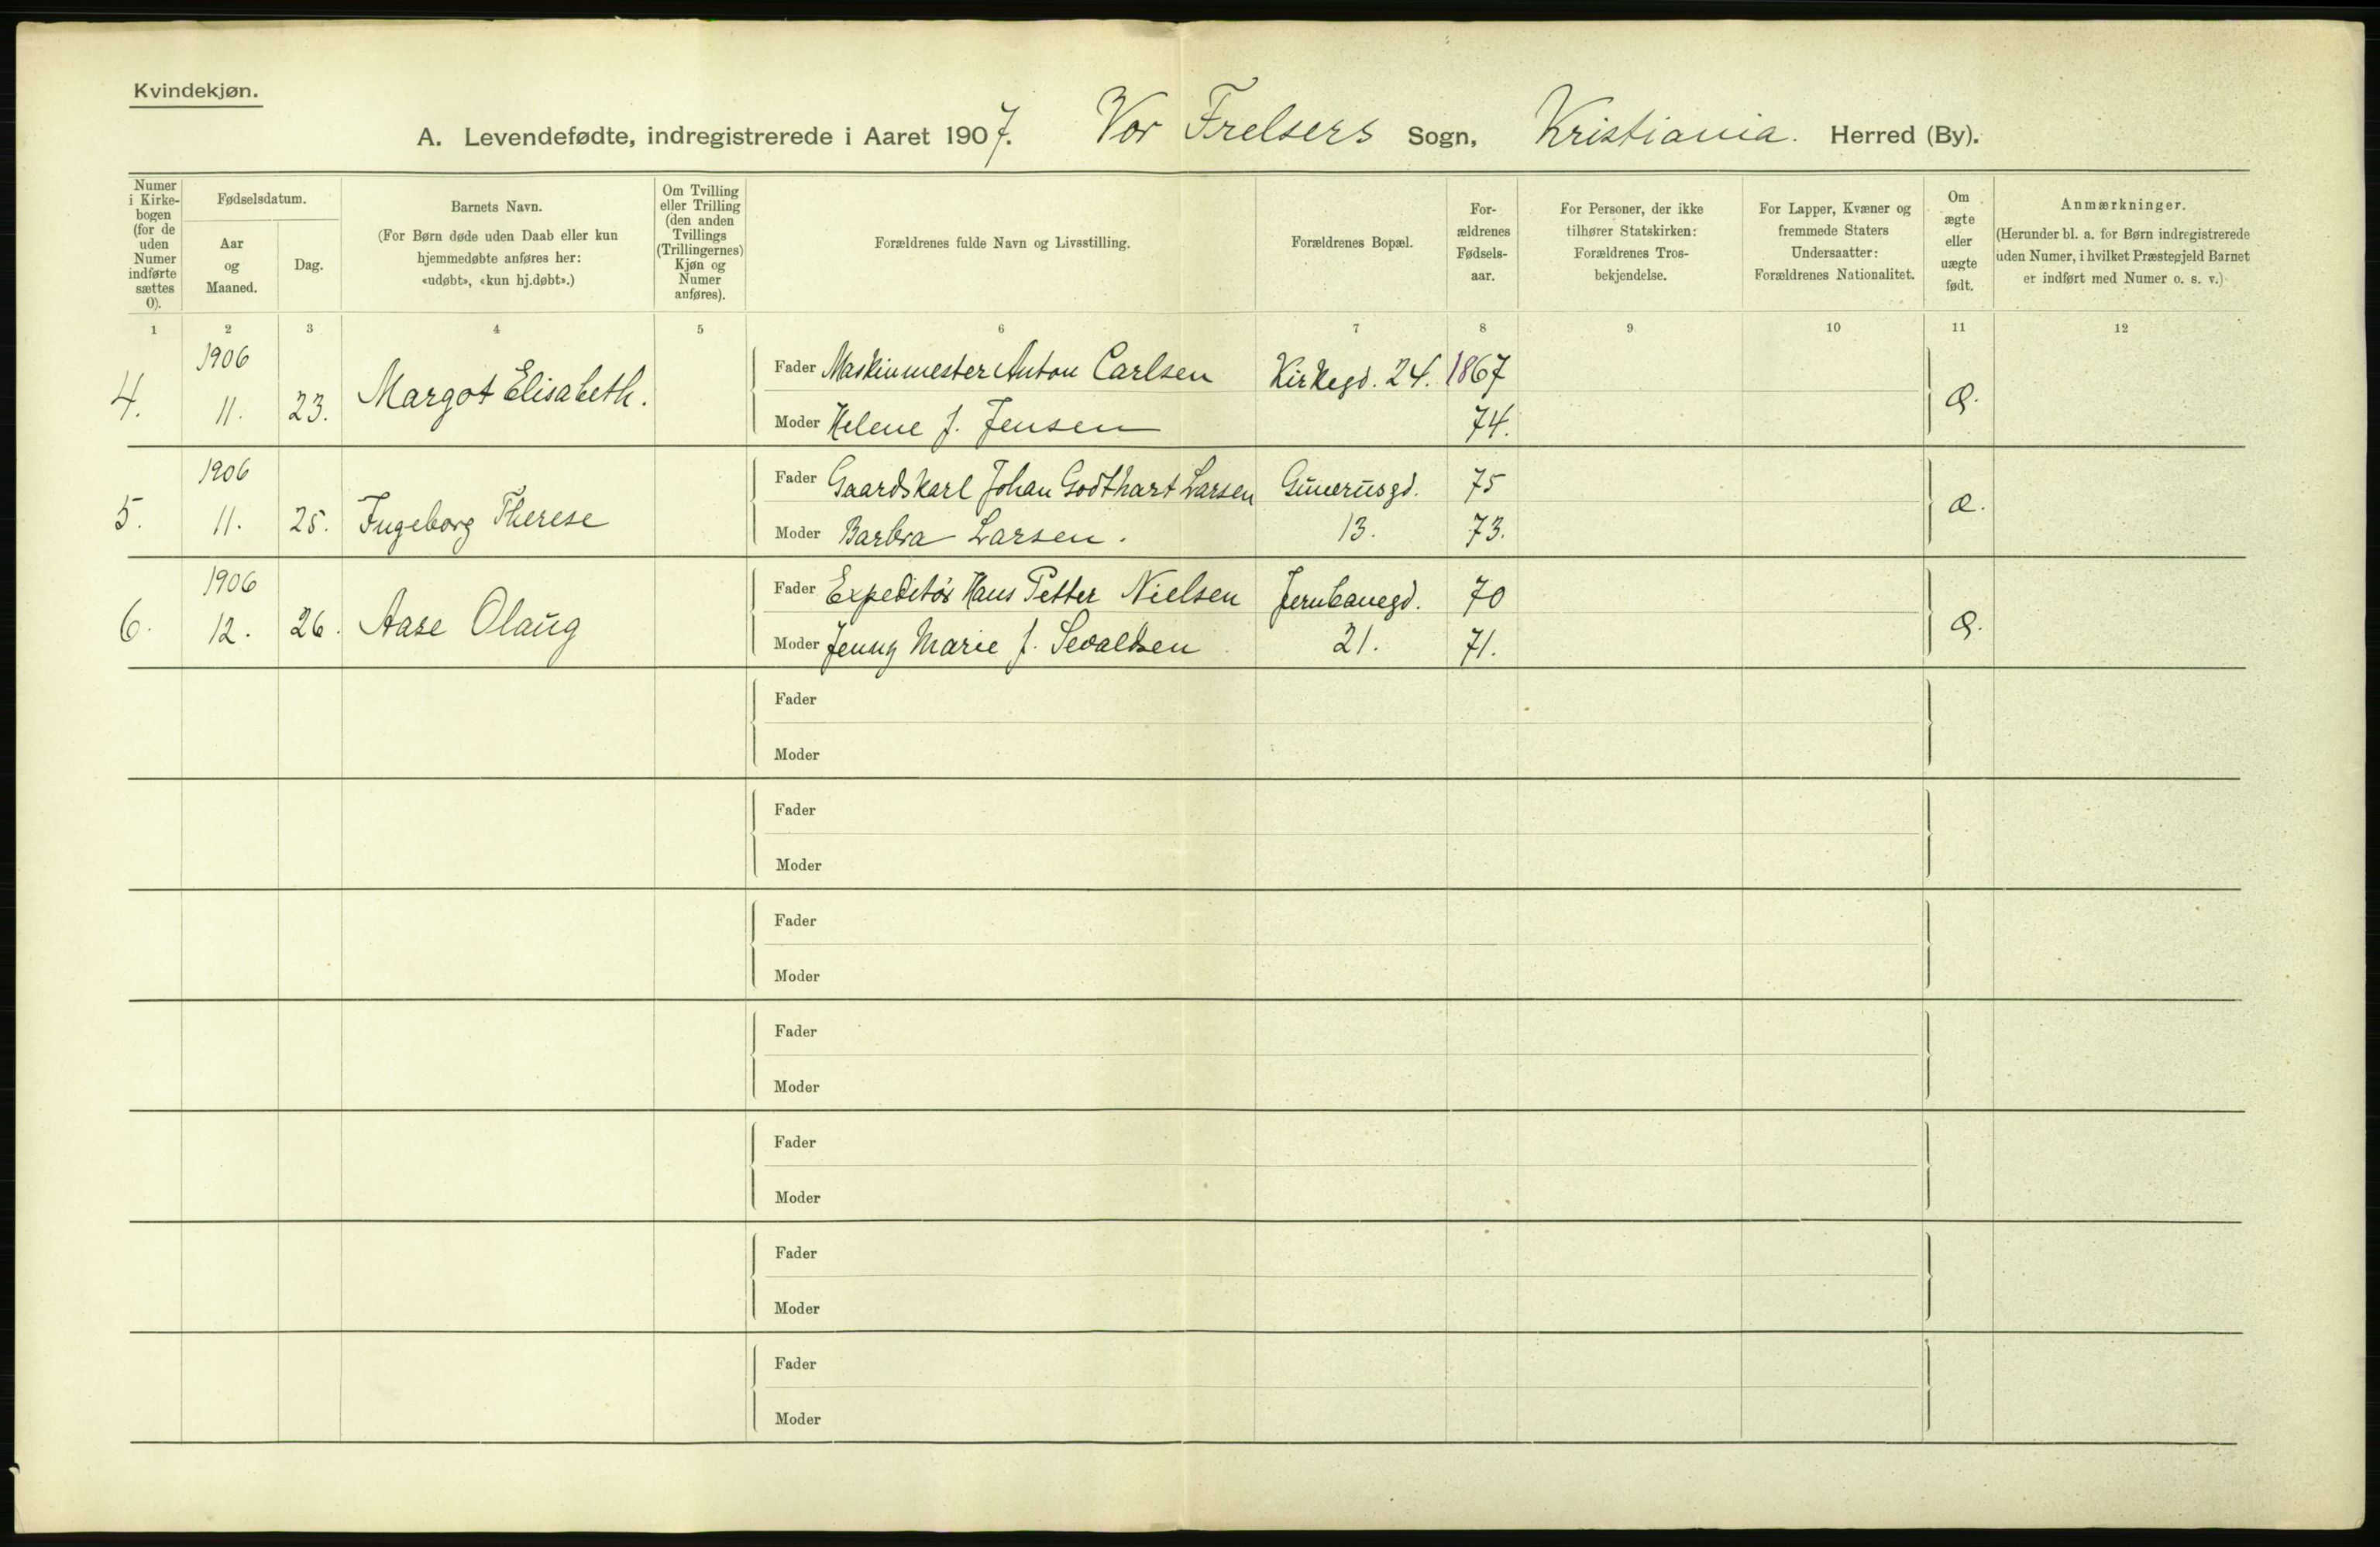 Kvindekjøn.
A. Levendefødte, indregistrerede i Aaret 1907. Vor Frelsers Sogn, Kristiania. Herred (By).
Numer i Kirkebogen (for de uden Numer indførte sættes 0).
Fødselsdatum.
Aar og Maaned.
Dag.
Barnets Navn.
(For Børn døde uden Daab eller kun
hjemmedøbte anføres her:
«udøbt», «kun hj.døbt».)
Om Tvilling
eller Trilling
(den anden
Tvillings
(Trillingernes)
Kjøn og
Numer
anføres).
Forældrenes fulde Navn og Livsstilling.
Forældrenes Bopæl.
For-
ældrenes
Fødsels-
aar.
For Personer, der ikke
tilhører Statskirken:
Forældrenes Tros-
bekjendelse.
For Lapper, Kvæner og
fremmede Staters
Undersaatter:
Forældrenes Nationalitet.
Om
ægte
eller
uægte
født.
Anmærkninger.
(Herunder bl. a. for Børn indregistrerede
uden Numer, i hvilket Præstegjeld Barnet
er indført med Numer o. s. v.)
1 2 3 4 5 6 7 8 9 10 11 12
1906
4. 11. 23. Margot Elisabeth.
Fader Maskinmester Anton Carlsen Kirkegd. 24. 1867
Moder Helene f. Jensen 74.
Æ.
1906
5. 11. 25. Ingeborg Therese
Fader Gaardskarl Johan Godthart Larsen Gunerusgd. 75
Moder Barbra Larsen. 13. 73.
Æ.
1906
6. 12. 26. Aase Olaug
Fader Expeditør Hans Petter Nielsen Jernbanegd. 70
Moder Jenny Marie f. Sevaldsen 21. 71.
Æ.
Fader
Moder
Fader
Moder
Fader
Moder
Fader
Moder
Fader
Moder
Fader
Moder
Fader
Moder